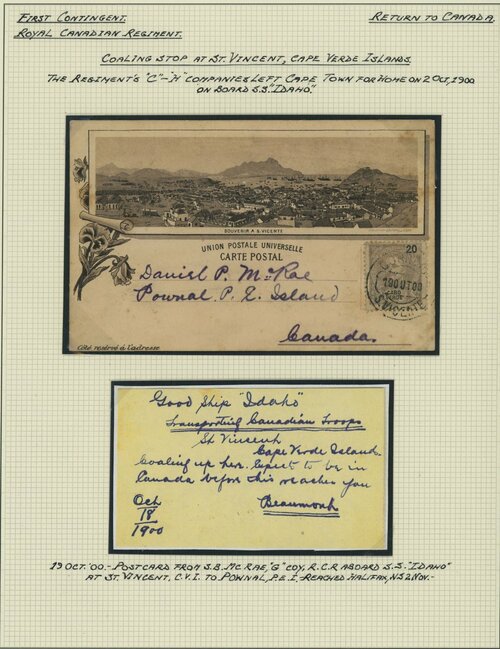 First Contingent. Return to Canada
Royal Canadian Regiment.
Coaling stop at St. Vincent, Cape Verde Islands.
The Regiment's "C"-"H" companies left Cape Town for home on 2 Oct, 1900
on board S.S. "Idaho".
SOUVENIR A S. VICENTE
UNION POSTALE UNIVERSELLE
CARTE POSTAL
20
19OUT00
S. VICENTE
Daniel P. McRae
Pownal P. E. Island
Canada.
Côté reservé à l'adresse
Good Ship "Idaho"
Transporting Canadian Troops
St Vincent
Cape Verde Island.
Coaling up here. Expect to be in
Canada before this reaches you
Oct
18
1900
Beaumont
19 Oct. '00.- Postcard from S.B. McRae, "G" Coy, R.C.R aboard S.S. "Idaho"
at St. Vincent, C.V.I. to Pownal, P.E.I. Reached Halifax, NS 2 Nov.-